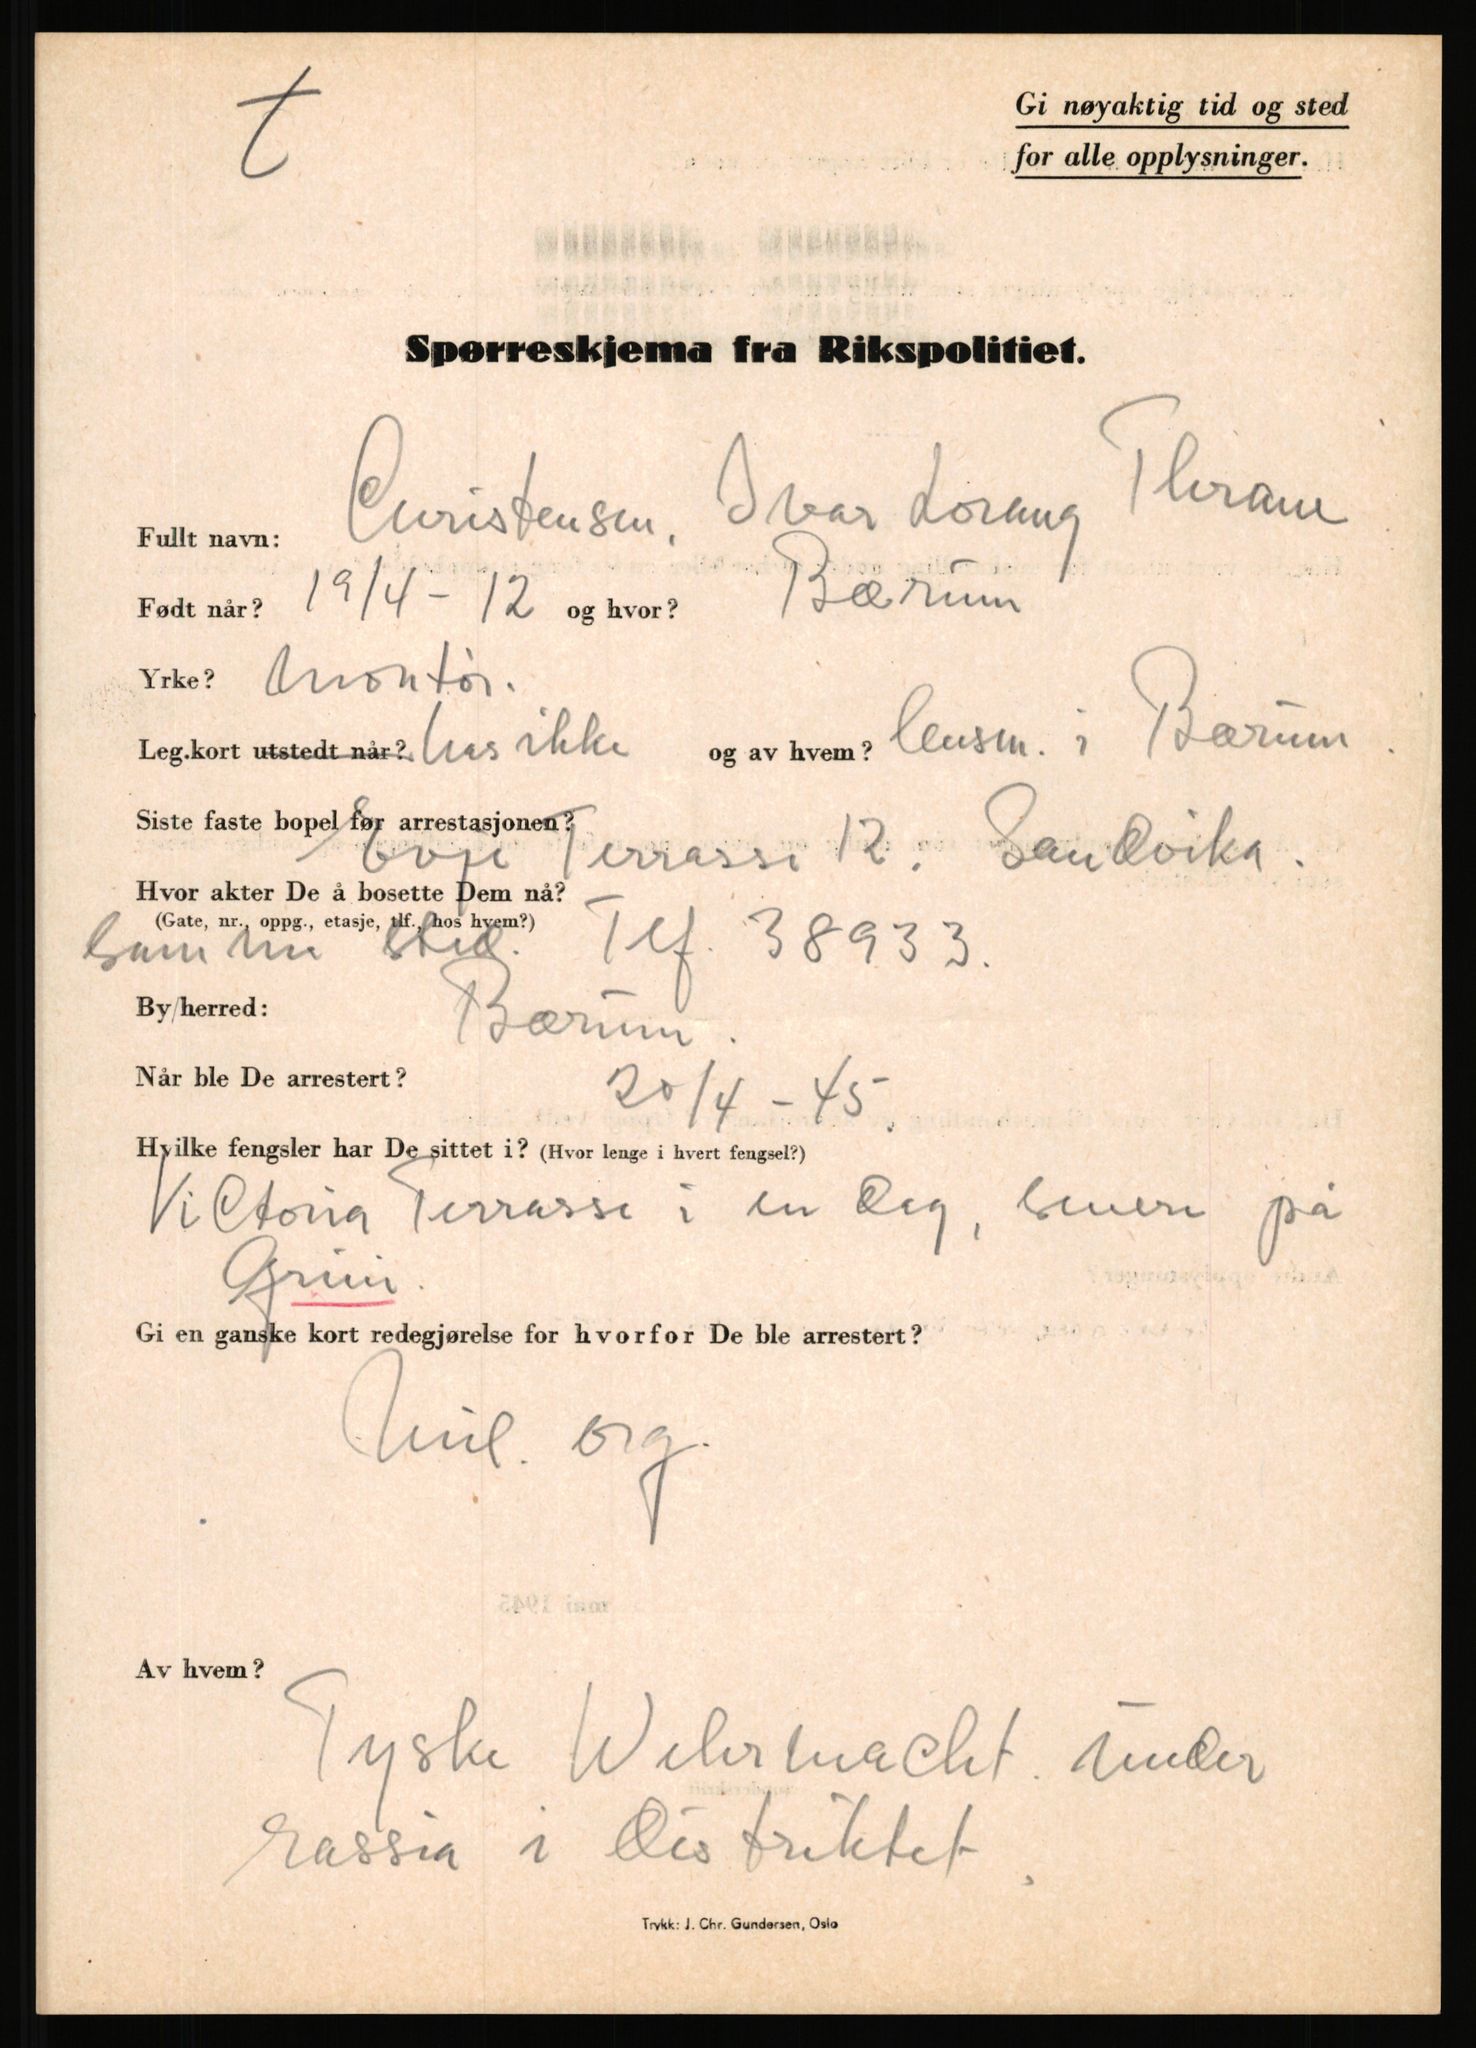 t
Gi nøyaktig tid og sted
for alle opplysninger.
Spørreskjema fra Rikspolitiet.
Fullt navn: Christensen, Ivar Lorang Thrane
Født når? 19/4 - 12 og hvor? Bærum
Yrke? Montør.
Leg.kort utstedt når? har ikke og av hvem? lensm. i Bærum.
Siste faste bopel før arrestasjonen?
Evje Terrasse 12. Sandvika.
Hvor akter De å bosette Dem nå?
(Gate, nr., oppg., etasje, tlf., hos hvem?)
samme sted. Tlf. 38933.
By/herred: Bærum.
Når ble De arrestert? 20/4 - 45.
Hvilke fengsler har De sittet i? (Hvor lenge i hvert fengsel?)
Victoria Terrasse i en dag, senere på
Grini.
Gi en ganske kort redegjørelse for hvorfor De ble arrestert?
Mil. org.
Av hvem?
Tyske Wehrmacht under
rassia i distriktet.
Trykk: J. Chr. Gundersen, Oslo